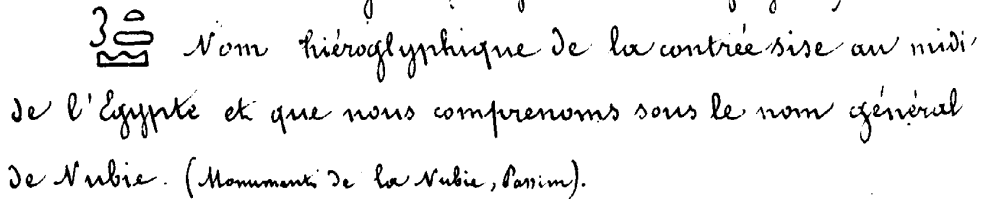 Nom hiéroglyphique de la contrée sise au midi
de l'Egypte et que nous comprenoms sous le nom général
de Nubie. (Monuments de la Nubie, Passim).